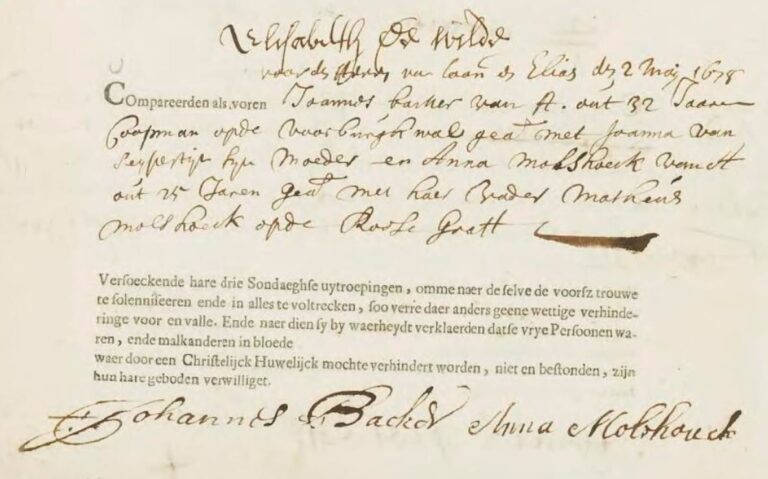 Elisabeth De Wilde
voor de Heren van Loan en Elias den 2 Maij 1678
Compareerden als voren Joannes backer van A. out 32 Jaaren
Coopman opde voorburghwal gead met Joanna van
sijn Moeder en Anna Molshoeck van A
out 25 Jaren gead met haer Vader Matheus
molshoeck opde Roose Graft
Versoeckende hare drie Sondaeghse uytroepingen, omme naer de selve de voorsz trouwe
te solenniseeren ende in alles te voltrecken, soo verre daer anders geene wettige verhinde-
ringe voor en valle. Ende naer dien sy by waerheydt verklaerden datse vrye Persoonen wa-
ren, ende malkanderen in bloede
waer door een Christelijck Huwelijck mochte verhindert worden, niet en bestonden, zijn
hun hare geboden verwilliget.
Johannes Backer Anna Molshouck